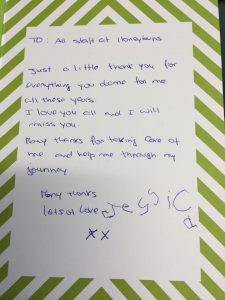 TO: All staff at Honeybuns
Just a little thank you for
everything you done for me
all these years.
I love you all and I will
miss you.
Many thanks for taking care of
me and help me through my
journey
Many thanks
lots of love Jessica
xx